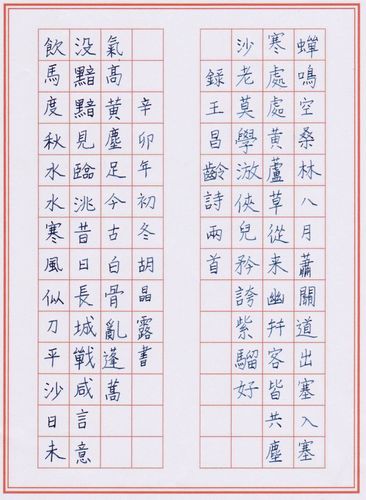 蟬鳴空桑林八月蕭關道出塞入塞
寒處處黃蘆草從來幽幷客皆共塵
沙老莫學游俠兒矜誇紫騮好
錄王昌齡詩兩首
飲馬度秋水水寒風似刀平沙日未
没黯黯見臨洮昔日長城戰咸言意
氣高黃塵足今古白骨亂蓬蒿
辛卯年初冬胡晶露書